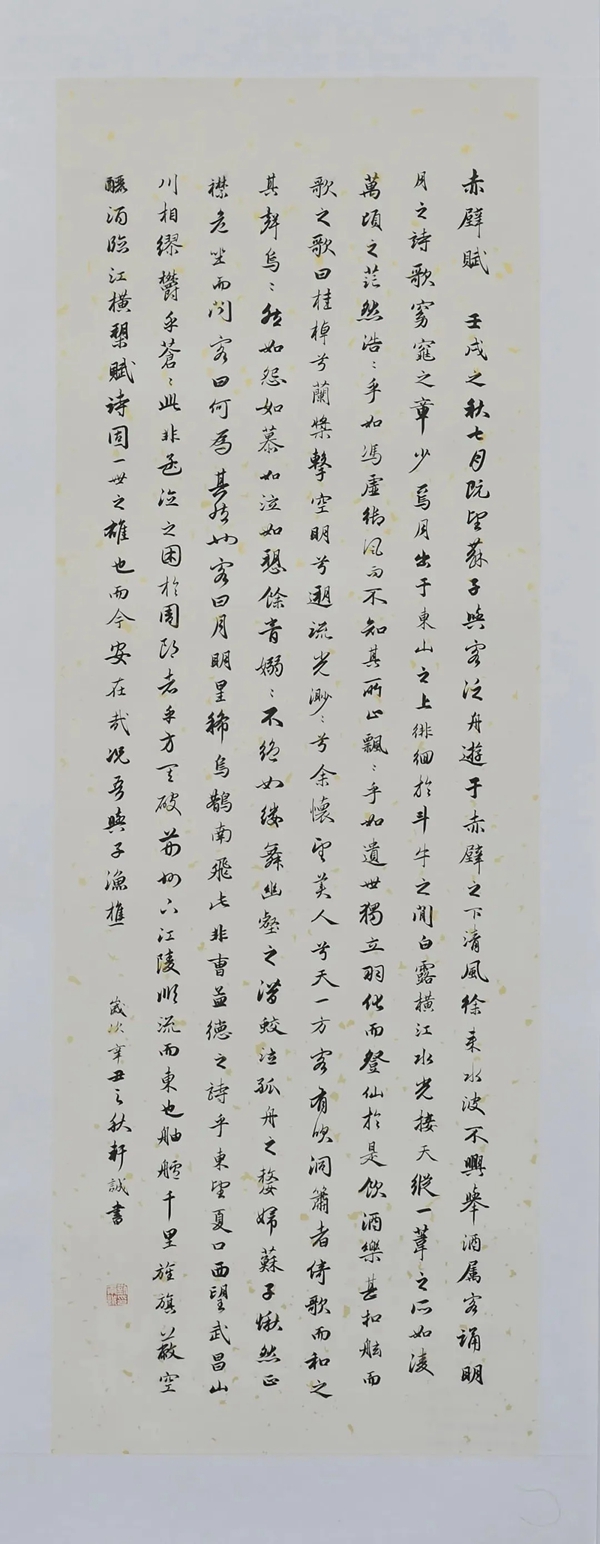 赤壁賦　壬戌之秋七月既望蘇子與客泛舟遊于赤壁之下清風徐來水波不興舉酒属客誦明
月之詩歌窈窕之章少焉月出于東山之上徘徊於斗牛之間白露橫江水光接天縱一葦之所如凌
萬頃之茫然浩〻乎如馮虛御風而不知其所止飄〻乎如遺世獨立羽化而登仙於是飲酒樂甚扣舷而
歌之歌曰桂棹兮蘭槳擊空明兮遡流光渺〻兮余懷望美人兮天一方客有吹洞簫者倚歌而和之
其聲烏〻然如怨如慕如泣如愬餘音嫋〻不絕如縷舞幽壑之潛蛟泣孤舟之嫠婦蘇子愀然正
襟危坐而问客曰何為其然也客曰月明星稀烏鵲南飛此非曹孟德之詩乎東望夏口西望武昌山
川相繆鬱乎蒼〻此非孟德之困於周郎者乎方其破荊州下江陵順流而東也舳艫千里旌旗蔽空
釃酒臨江橫槊賦詩固一世之雄也而今安在哉况吾與子漁樵
歲次辛丑之秋軒誠書